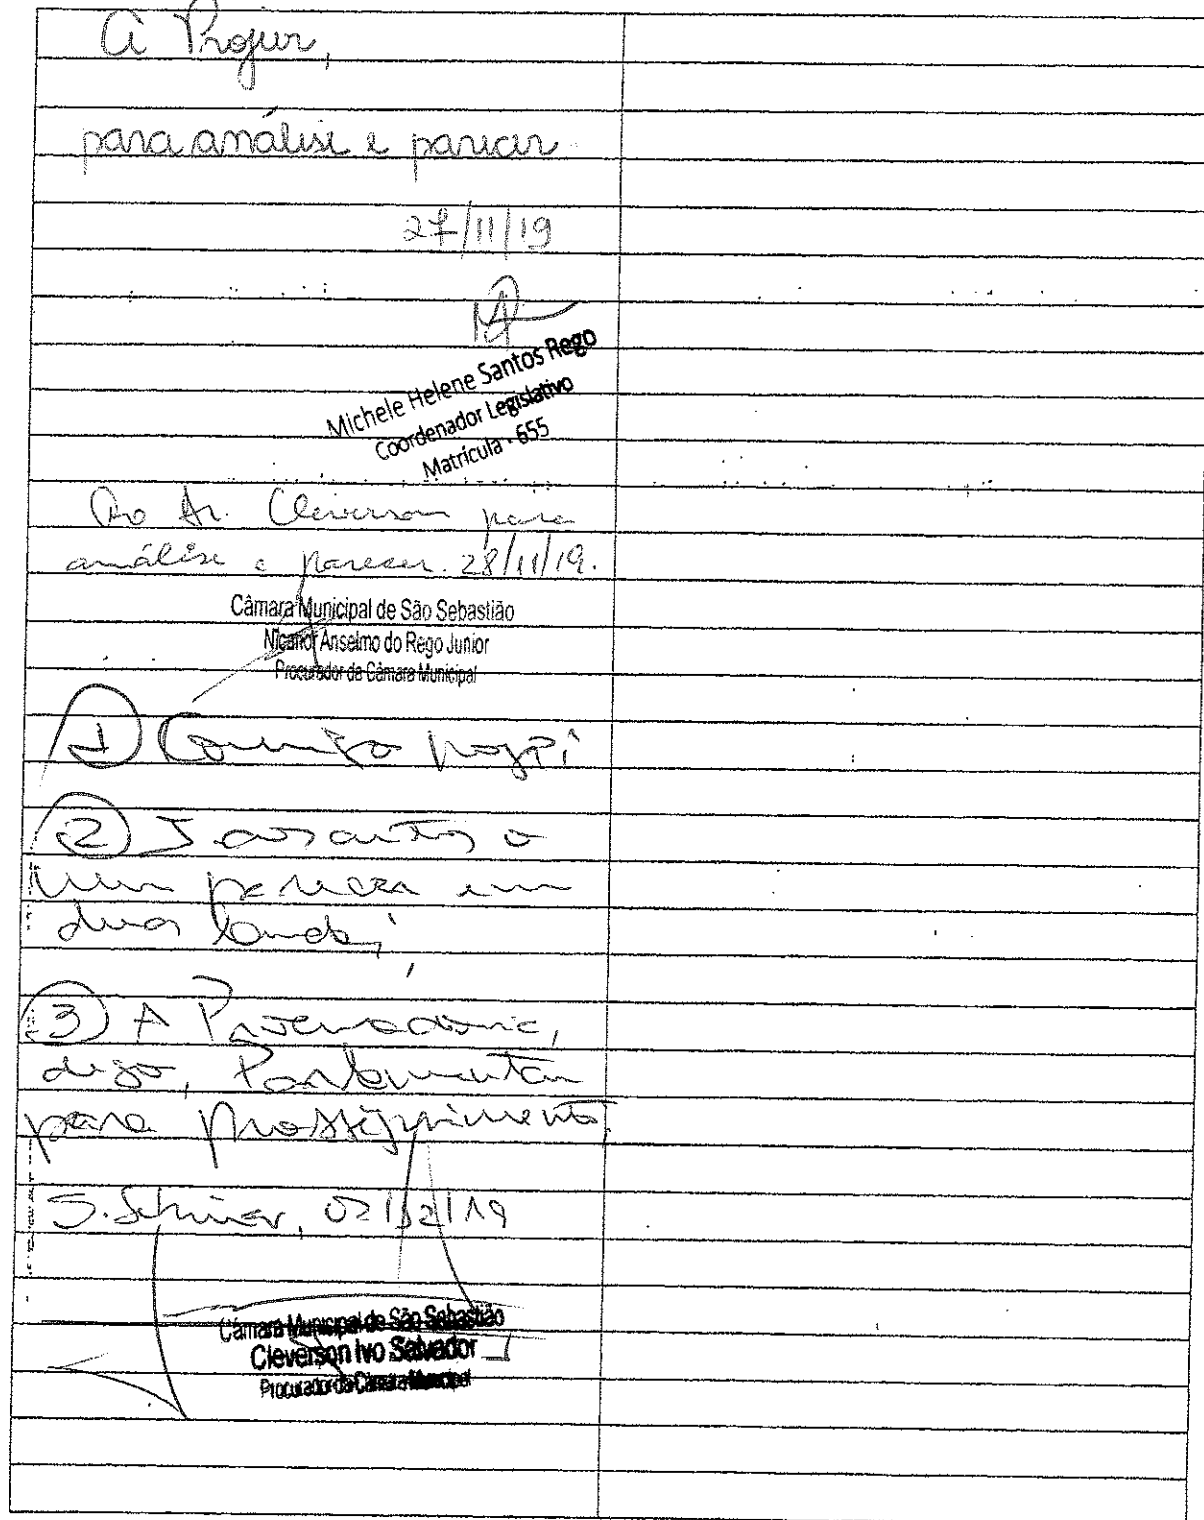 À Projur,
para análise e parecer
27/11/19
Michele Helene Santos Rego
Coordenador Legislativo
Matrícula - 655
Ao Dr. Cleverson para
análise e parecer. 28/11/19.
Câmara Municipal de São Sebastião
Nicanor Anselmo do Rego Junior
Procurador da Câmara Municipal
1)
2)
parecer em
duas laudas;
3) A Procuradoria,
digo, Parlamentar
para prosseguimento.
02/12/19
Câmara Municipal de São Sebastião
Cleverson Ivo Salvador
Procurador da Câmara Municipal